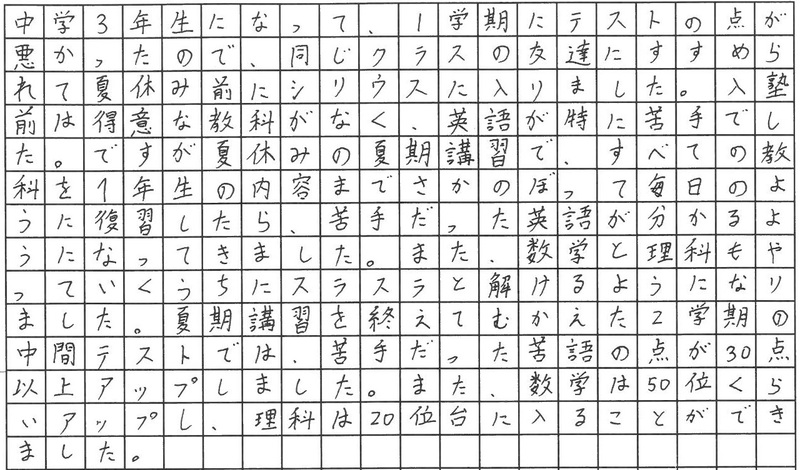 中学3年生になって、1学期にテストの点が
悪かったので、同じクラスの友達にすすめら
れて夏休み前にシリウスに入りました。入塾
前は得意な教科がなく、英語が特に苦手でし
た。ですが夏休みの夏期講習で、すべての教
科を1年生の内容までさかのぼって毎日のよ
うに復習したら、苦手だった英語が分かるよ
うになってきました。また、数学と理科もや
っていくうちにスラスラと解けるようになり
ました。夏期講習を終えてむかえた2学期の
中間テストでは、苦手だった苦語の点が30点
以上アップしました。また、数学は50位くら
いアップし、理科は20位台に入ることができ
ました。